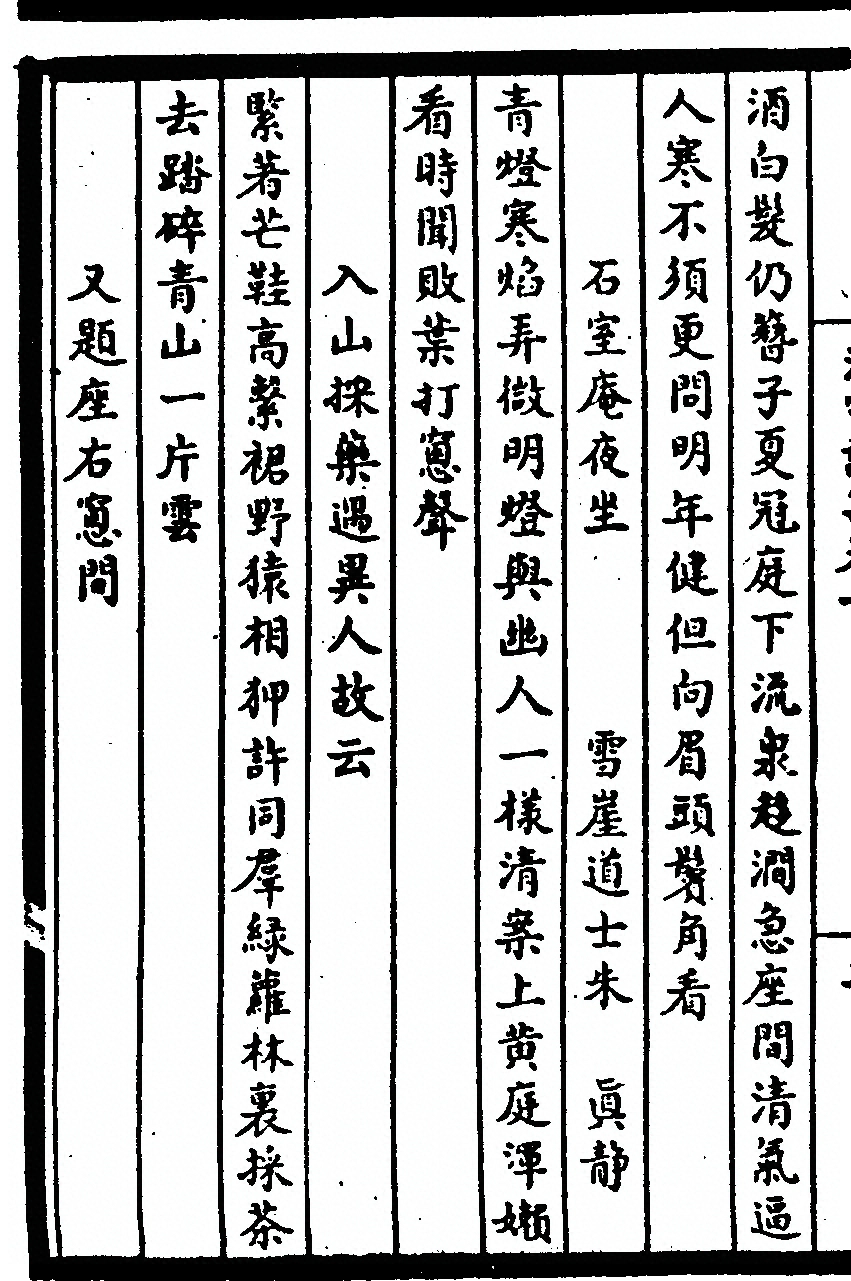 酒白髮仍簪子夏冠庭下流泉趍澗急座間清氣逼
人寒不須更問明年健但向眉頭鬂角看
石室庵夜坐　雪崖道士朱　眞静
青燈寒焰弄微明燈與幽人一樣清案上黄庭渾嬾
看時聞敗葉打窻聲
入山採藥遇異人故云
緊著芒鞋高繫裙野猿相狎許同羣緑蘿林裏採茶
去踏碎青山一片雲
又題座右窻間